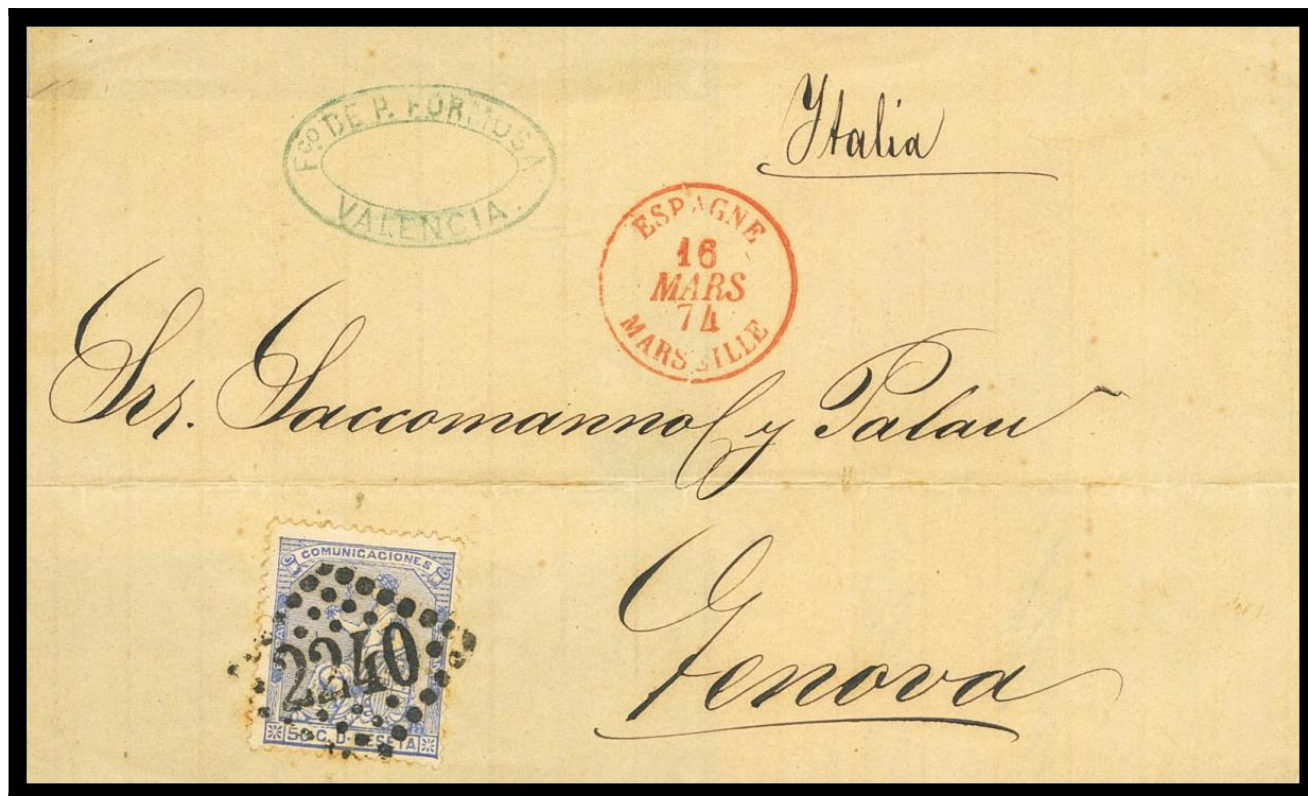 Fco DE P. FORMOSA
VALENCIA.
Italia
ESPAGNE
16
MARS
74
MARSEILLE
Srs. Saccomanno y Palau
Genova
COMUNICACIONES
2240
50 C. D. PESETA